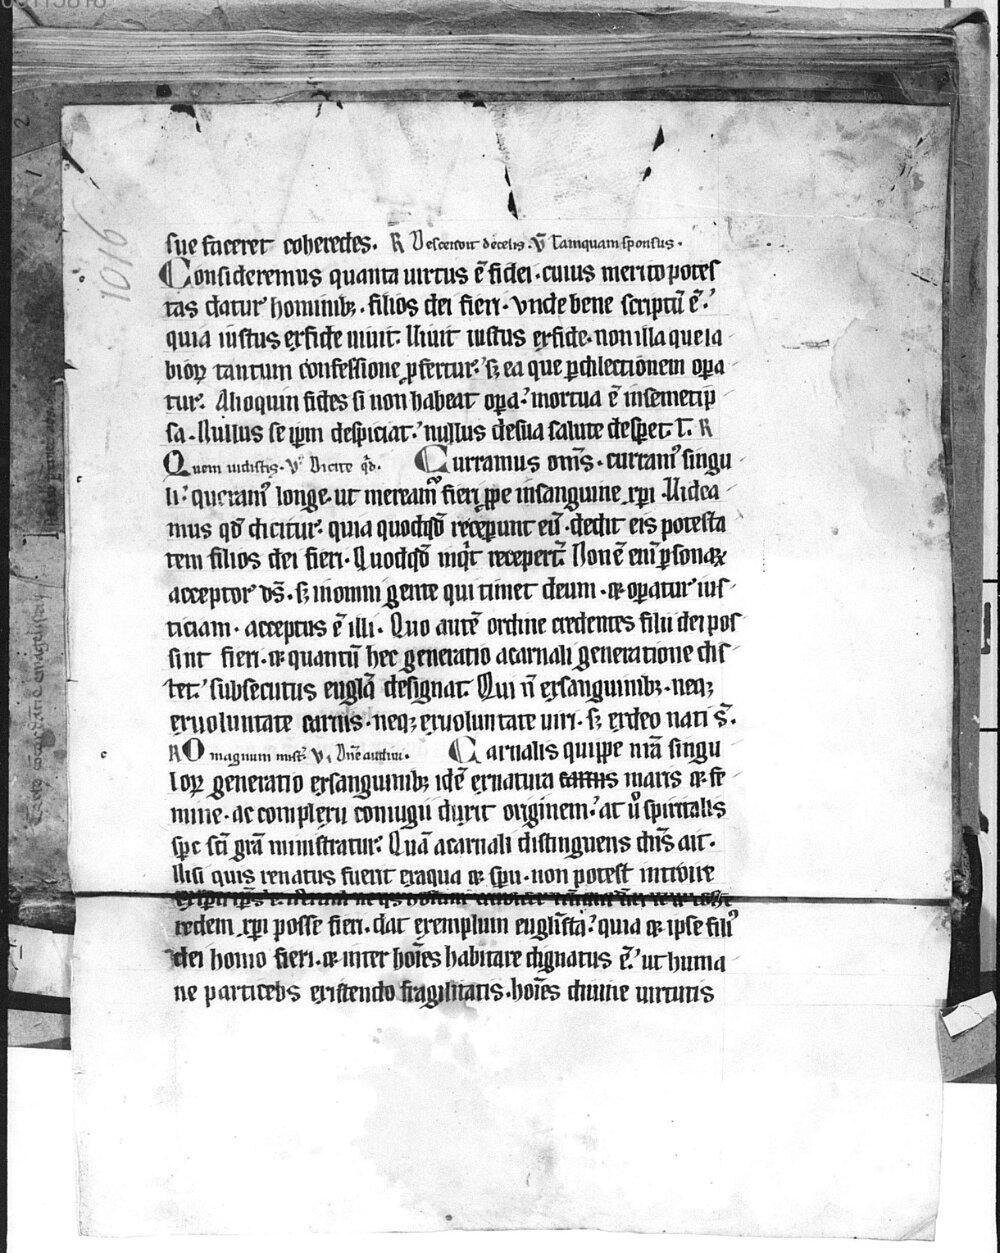 sue faceret coheredes. R Descendit de celis. V Tamquam sponsus.
Consideremus quanta uirtus ē fidei. cuius merito potes
tas datur hominibꝫ. filios dei fieri. Vnde bene scriptū ē.
quia iustus ex fide uiuit. Uiuit iustus ex fide. non illa que la
bioꝝ tantum confessione ꝓfertur. sꝫ ea que ꝑ dilectionem oꝑa
tur. Alioquin fides si non habeat oꝑa. mortua ē in semetip
sa. Nullus se ip̄m despiciat. nullus de sua salute desꝑet. R
Quem uidistis. V Dicite qd. Curramus om̄s. curram᷒ singu
li. queram᷒ longe. ut meream᷒ fieri ꝓpe in sanguine xp̄i. Uidea
mus qd̄ dicitur. quia quodqd̄ receperunt eū. dedit eis potesta
tem filios dei fieri. Quodqd̄ inqt recepert̄. Non ē eni ꝑsonaꝝ
acceptor ds̄. sꝫ in omni gente qui timet deum. ⁊ oꝑatur ius
ticiam. acceptus ē illi. Quo autē ordine credentes filii dei pos
sint fieri. ⁊ quantū hec generatio a carnali generatione dis
tet. subsecutus euuglā designat. Qui n̄ ex sanguinibꝫ. neqꝫ
ex uoluntate carnis. neqꝫ ex uoluntate uiri. sꝫ ex deo nati s̄.
R O magnum mist. V Dn̄e audiui. Carnalis quippe nr̄a singu
loꝝ generatio ex sanguinibꝫ idē ex natura maris ⁊ fe
mine. ac complexu coniugii duxit originem. at ū spiritalis
sp̄c sc̄i grā ministratur. Quā a carnali distinguens dn̄s ait.
Nisi quis renatus fuerit ex aqua ⁊ spu. non potest introire
redem xp̄i posse fieri. dat exemplum euuglista. quia ⁊ ipse fili᷒
dei homo fieri. ⁊ inter hoīes habitare dignatus ē. ut huma
ne particeps existendo fragilitatis. hoīes diuine uirtutis
1016